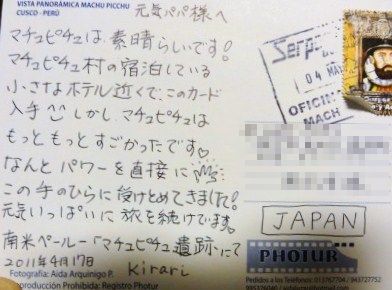 VISTA PANORÁMICA MACHU PICCHU
CUSCO - PERÚ
元気パパ様へ
マチュピチュは、素晴らしいです!
マチュピチュ村の宿泊している
小さなホテル近くで、このカード
入手 しかしマチュピチュは
もっともっとすごかったです♡
なんとパワーを直接に
この手のひらに受けとめてきました!
元気いっぱいに旅を続けてます。
南米ペールー「マチュピチュ遺跡」にて
2011年4月17日
Kirari
Serpost
04 MA
OFICIN
MACH
JAPAN
PHOTUR
Fotografía: Aida Arquinigo P.
Reproducción Prohibida: Registro Photur
Pedidos a los Telefonos: 013767704 /